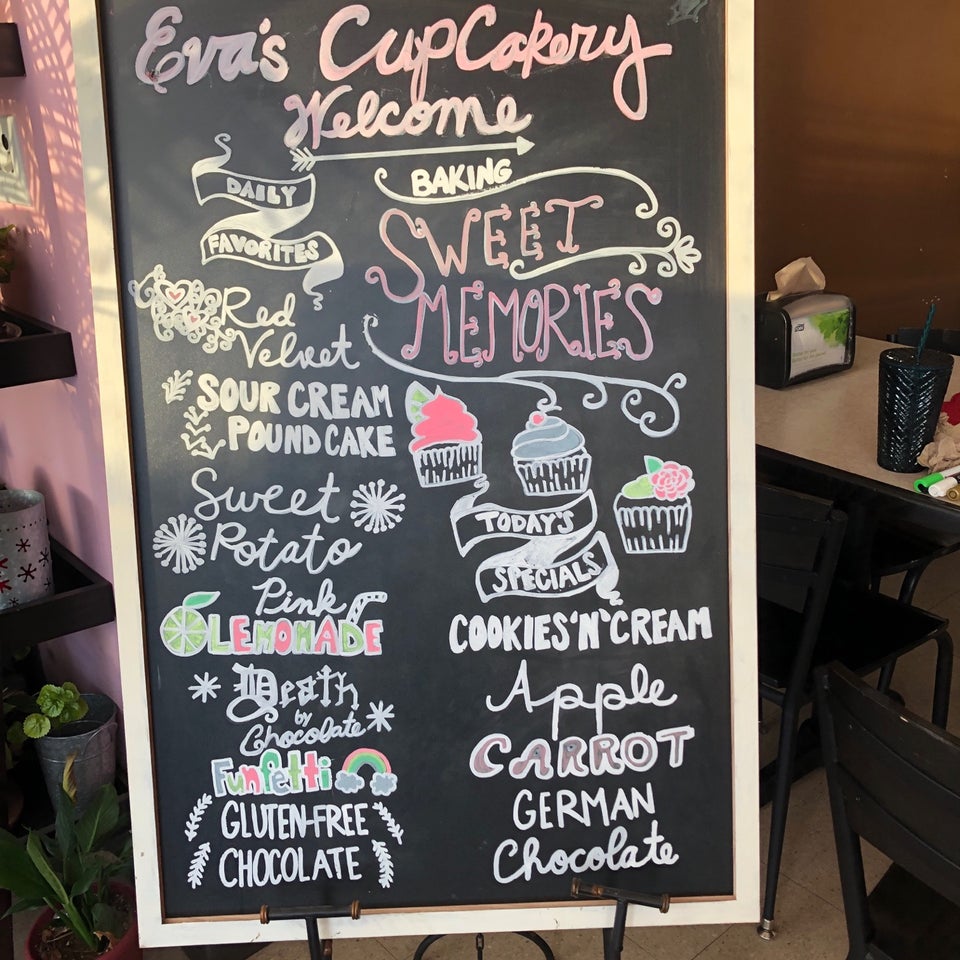 Eva's CupCakery
Welcome
DAILY
FAVORITES
Red
Velvet
SOUR CREAM
POUND CAKE
Sweet
Potato
Pink
LEMONADE
Death
by
Chocolate
Funfetti
GLUTEN-FREE
CHOCOLATE
BAKING
SWEET
MEMORIES
TODAY'S
SPECIALS
COOKIES 'N' CREAM
Apple
CARROT
GERMAN
Chocolate